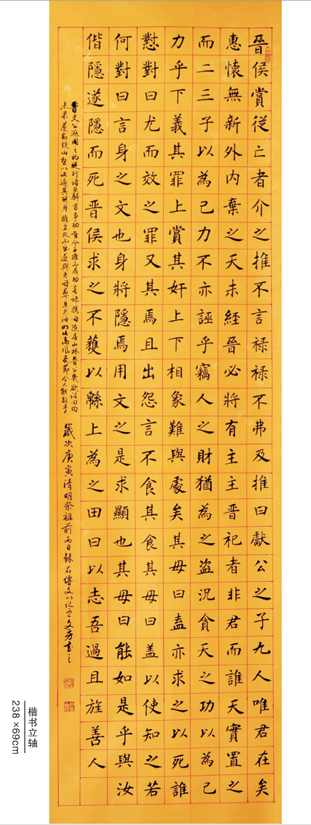 晉侯賞從亡者介之推不言祿祿不弗及推曰獻公之子九人唯君在矣
惠懷無新外內棄之天未經晉必將有主主晉祀者非君而誰天實置之
而二三子以為己力不亦誣乎竊人之財猶為之盜況貪天之功以為己
力乎下義其罪上賞其奸上下相象難與處矣其母曰盍亦求之以死誰
懟對曰尤而效之罪又其焉且出怨言不食其食其母曰蓋以使知之若
何對曰言身之文也身將隱焉用文之是求顯也其母曰能如是乎與汝
偕隱遂隱而死晉侯求之不獲以緜上為之田曰以志吾過且旌善人
歲次庚寅清明祭祖前兩日錄左傳文以記之
楷书立轴
238×69cm